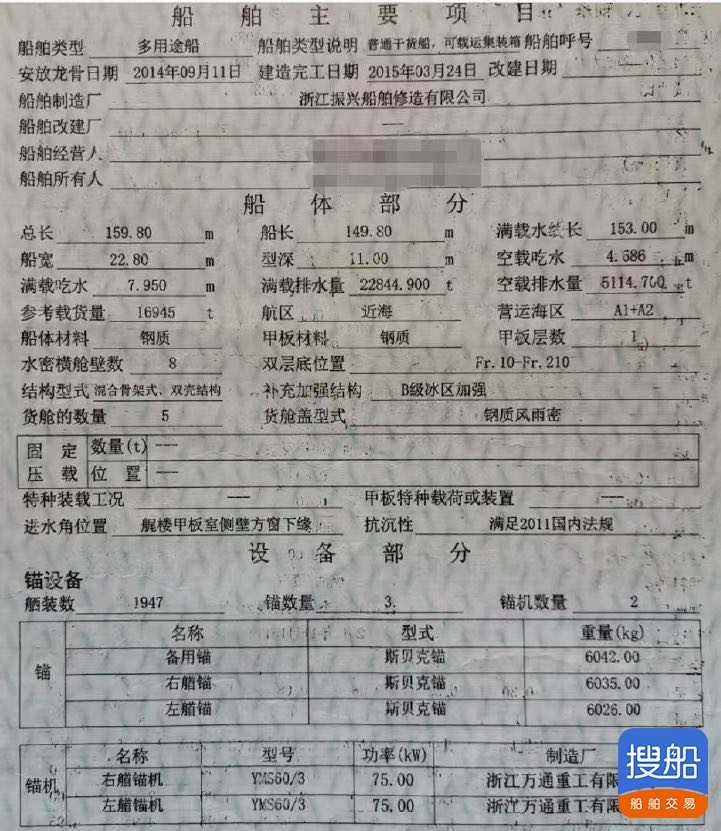 船舶主要项目
船舶类型 多用途船 船舶类型说明 普通干货船，可载运集装箱 船舶呼号
安放龙骨日期 2014年09月11日 建造完工日期 2015年03月24日 改建日期 —
船舶制造厂 浙江振兴船舶修造有限公司
船舶改建厂 —
船舶经营人
船舶所有人
船体部分
总长 159.80 m 船长 149.80 m 满载水线长 153.00 m
船宽 22.80 m 型深 11.00 m 空载吃水 4.686 m
满载吃水 7.950 m 满载排水量 22844.900 t 空载排水量 5114.700 t
参考载货量 16945 t 航区 近海 营运海区 A1+A2
船体材料 钢质 甲板材料 钢质 甲板层数 1
水密横舱壁数 8 双层底位置 Fr.10-Fr.210
结构型式 混合骨架式、双壳结构 补充加强结构 B级冰区加强
货舱的数量 5 货舱盖型式 钢质风雨密
固定 数量(t) —
压载 位置 —
特种装载工况 — 甲板特种载荷或装置 —
进水角位置 艉楼甲板室侧壁方窗下缘 抗沉性 满足2011国内法规
设备部分
锚设备
舾装数 1947 锚数量 3 锚机数量 2
名称 型式 重量(kg)
锚
备用锚 斯贝克锚 6042.00
右艏锚 斯贝克锚 6035.00
左艏锚 斯贝克锚 6026.00
名称 型号 功率(kW) 制造厂
锚机
右艏锚机 YMS60/3 75.00 浙江万通重工有限
左艏锚机 YMS60/3 75.00 浙江万通重工有限
搜船
船舶交易